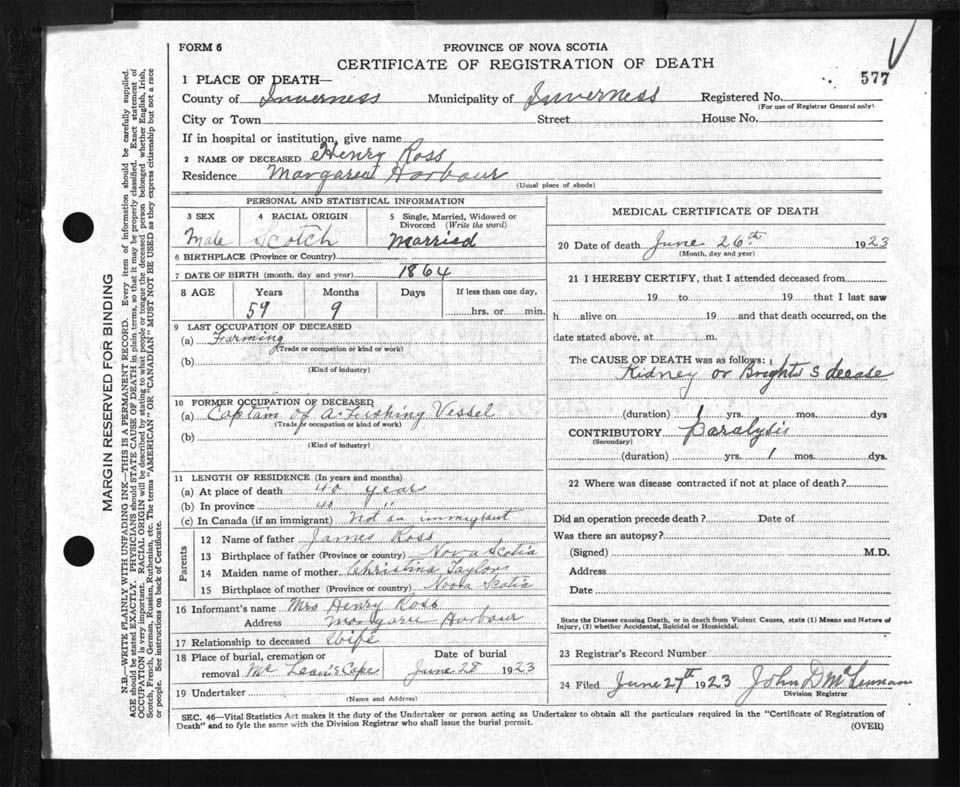 FORM 6
PROVINCE OF NOVA SCOTIA
CERTIFICATE OF REGISTRATION OF DEATH
577
1 PLACE OF DEATH—
County of Inverness Municipality of Inverness Registered No.
(For use of Registrar General only)
City or Town Street House No.
If in hospital or institution, give name
2 NAME OF DECEASED Henry Ross
Residence Margaree Harbour
(Usual place of abode)
PERSONAL AND STATISTICAL INFORMATION
3 SEX 4 RACIAL ORIGIN 5 Single, Married, Widowed or
Divorced (Write the word)
Male Scotch Married
6 BIRTHPLACE (Province or Country)
7 DATE OF BIRTH (month, day and year) 1864
8 AGE Years Months Days If less than one day,
59 9 hrs. or min.
9 LAST OCCUPATION OF DECEASED
(a) Farming
(Trade or occupation or kind of work)
(b)
(Kind of industry)
10 FORMER OCCUPATION OF DECEASED
(a) Captam of A Fishing Vessel
(Trade or occupation or kind of work)
(b)
(Kind of industry)
11 LENGTH OF RESIDENCE (In years and months)
(a) At place of death 40 years
(b) In province 40 "
(c) In Canada (if an immigrant) Not an immigrant
Parents
12 Name of father James Ross
13 Birthplace of father (Province or country) Nova Scotia
14 Maiden name of mother Christina Taylor
15 Birthplace of mother (Province or country) Nova Scotia
16 Informant's name Mrs Henry Ross
Address Margaree Harbour
17 Relationship to deceased Wife
18 Place of burial, cremation or Date of burial
removal Mc Lean's Cape June 28 1923
19 Undertaker
(Name and Address)
MEDICAL CERTIFICATE OF DEATH
20 Date of death June 26th 1923
(Month, day and year)
21 I HEREBY CERTIFY, that I attended deceased from
19 to 19 that I last saw
h alive on 19 and that death occurred, on the
date stated above, at m.
The CAUSE OF DEATH was as follows:
Kidney or Brights
(duration) 1 yrs. mos. dys
CONTRIBUTORY Paralysis
(Secondary)
(duration) yrs. 1 mos. dys.
22 Where was disease contracted if not at place of death?
Did an operation precede death? Date of
Was there an autopsy?
(Signed) M.D.
Address
Date
State the Disease causing Death, or in death from Violent Causes, state (1) Means and Nature of
Injury, (2) whether Accidental, Suicidal or Homicidal.
23 Registrar's Record Number
24 Filed June 27th 1923 John D McLennan
Division Registrar
SEC. 46—Vital Statistics Act makes it the duty of the Undertaker or person acting as Undertaker to obtain all the particulars required in the "Certificate of Registration of
Death" and to fyle the same with the Division Registrar who shall issue the burial permit.
(OVER)
MARGIN RESERVED FOR BINDING
N.B.—WRITE PLAINLY WITH UNFADING INK—THIS IS A PERMANENT RECORD. Every item of information should be carefully supplied.
AGE should be stated EXACTLY. PHYSICIANS should STATE CAUSE OF DEATH in plain terms, so that it may be properly classified. Exact statement of
OCCUPATION is very important. RACIAL ORIGIN will be described by stating to what people or tongue the deceased person belonged whether English, Irish,
Scotch, French, German, Russian, Ruthenian, etc. The terms "AMERICAN" OR "CANADIAN" MUST NOT BE USED as they express citizenship but not a race
or people. See instructions on back of Certificate.